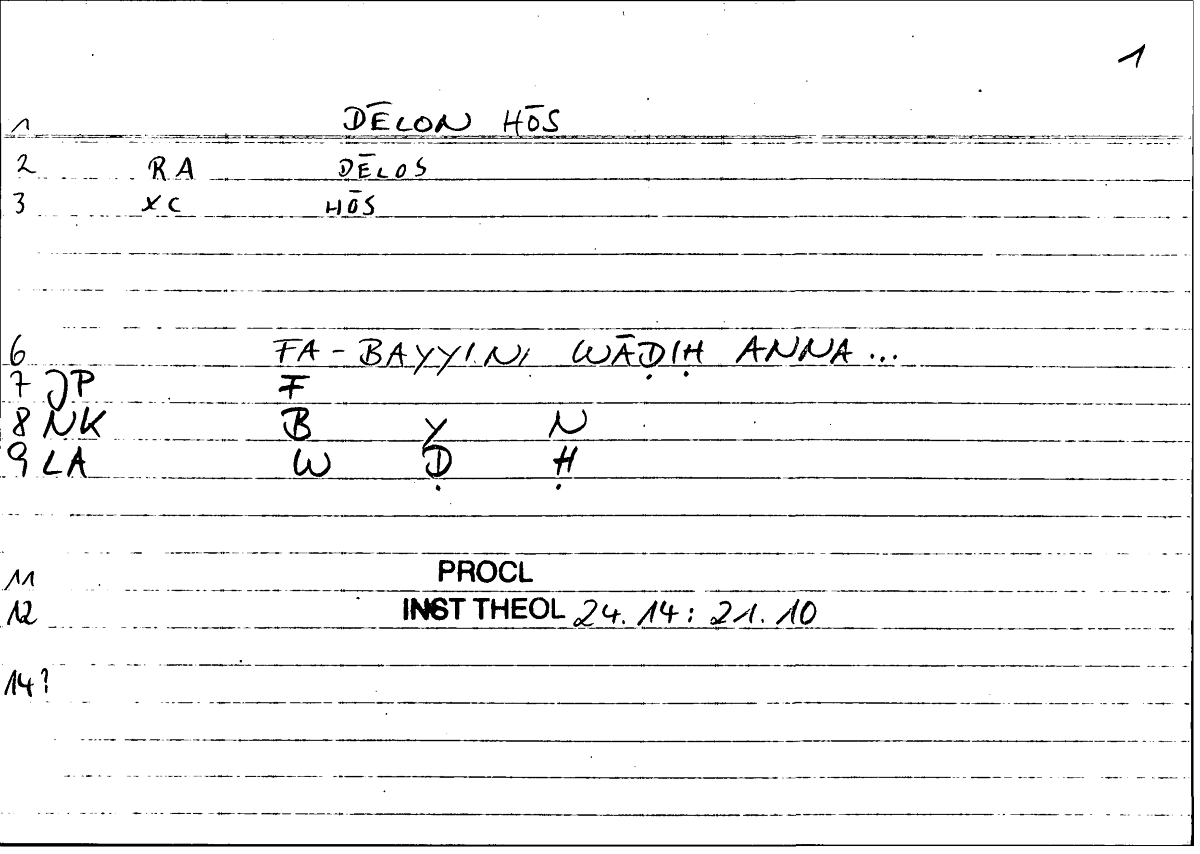 1
1 DĒLON HŌS
2 RA DĒLOS
3 XC HŌS
6 FA-BAYYINI WĀḌIḤ ANNA...
7 JP F
8 NK B Y N
9 LA W Ḍ Ḥ
11 PROCL
12 INST THEOL 24.14: 21.10
14?